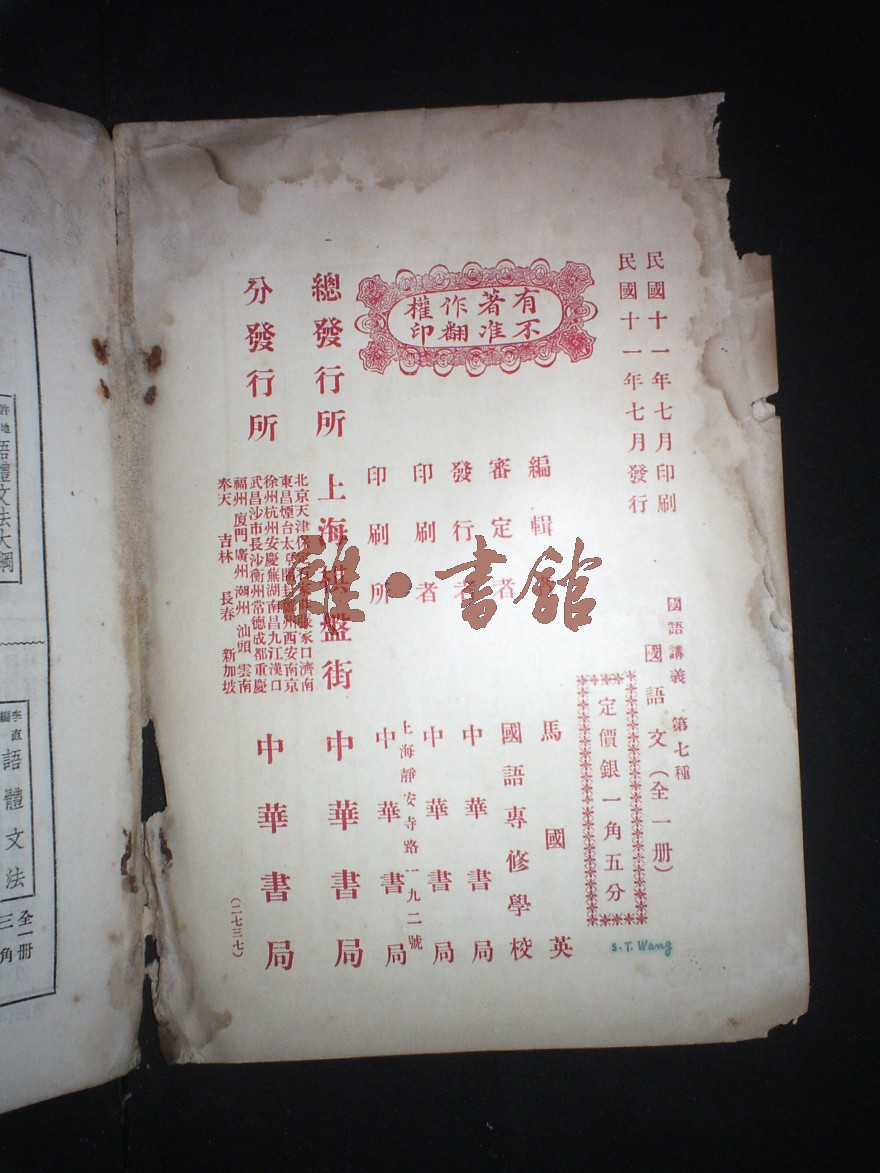 民國十一年七月印刷
民國十一年七月發行
國語講義第七種
國語文(全一册)
定價銀一角五分
有著作權
不准翻印
編輯者 馬國英
審定者 國語專修學校
發行者 中華書局
印刷者 中華書局
上海靜安寺路一九二號
印刷所 中華書局
總發行所 上海棋盤街 中華書局
分發行所
北京天津保定 張家口濟南
東昌煙台太原開封 州西安南京
徐州杭州安慶蕪湖南昌九江漢口
武昌沙市長沙衡州常德成都重慶
福州廈門廣州潮州汕頭雲南
奉天吉林長春新加坡
中華書局
(二七三七)
S.T. Wang
雜·書館
語體文法大綱
李直編
語體文法
全一册
三角